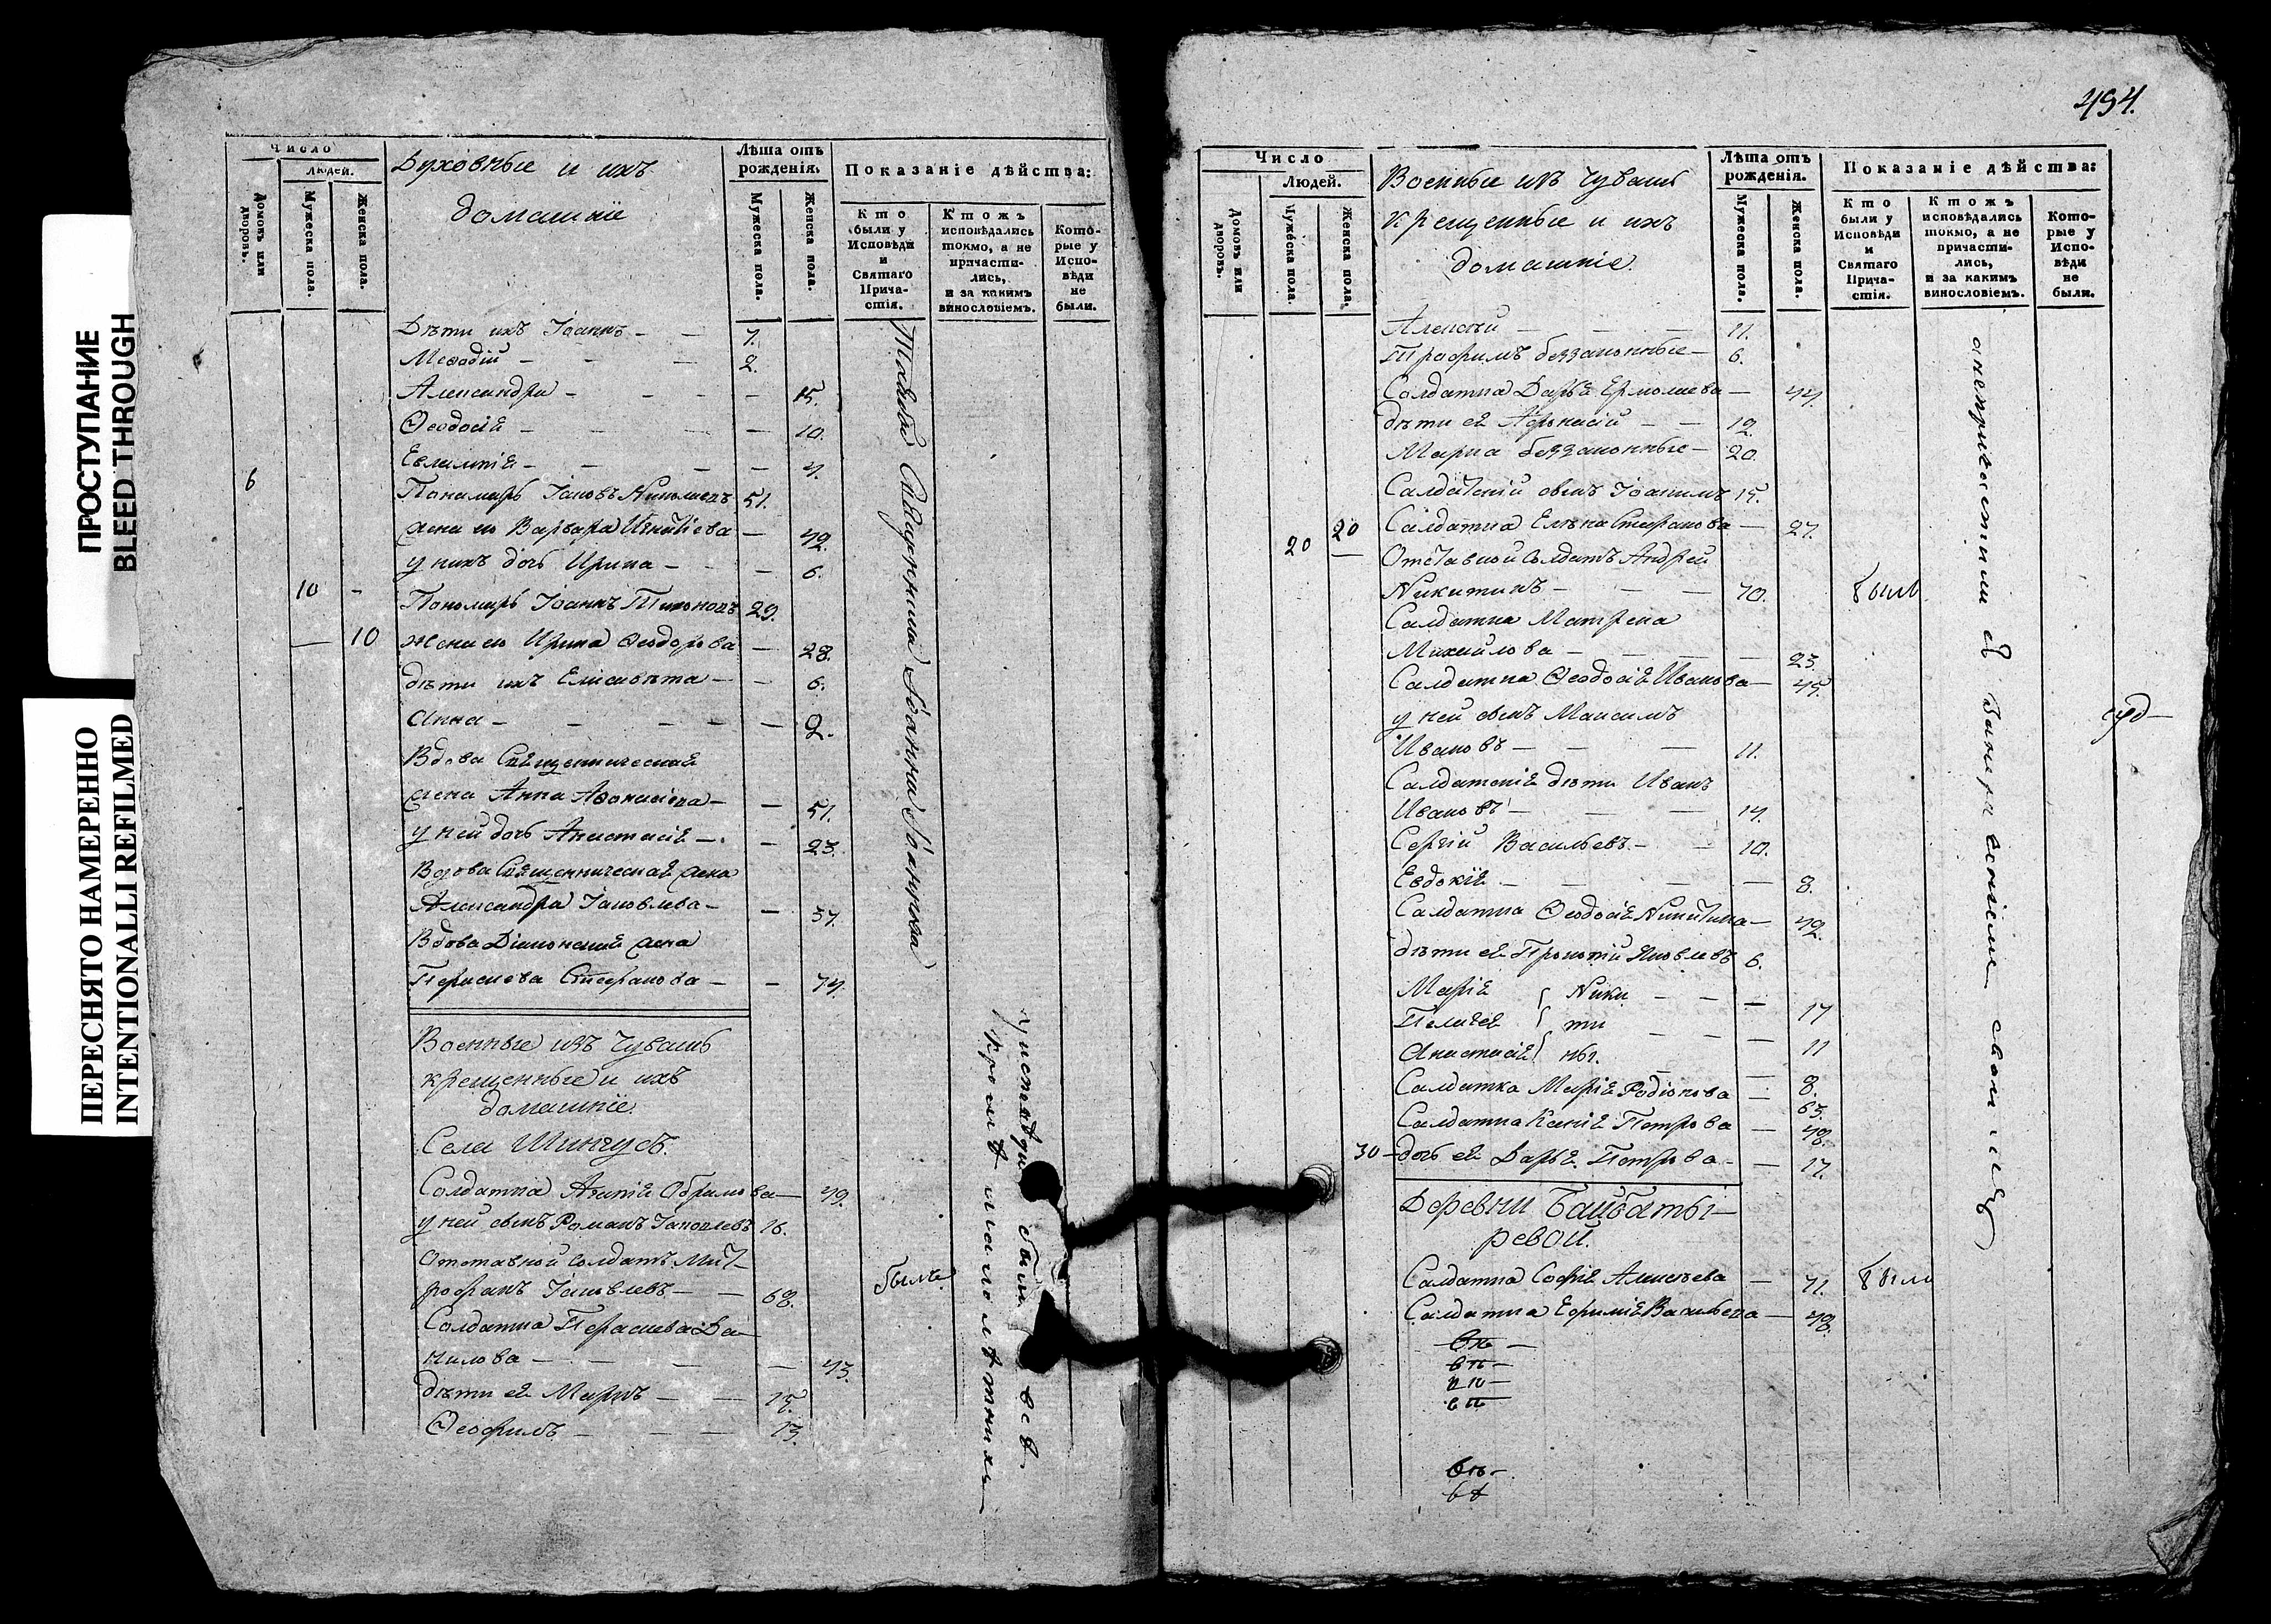 ПРОСТУПАНИЕ
BLEED THROUGH
ПЕРЕСНЯТО НАМЕРЕННО
INTENTIONALLI REFILMED
Число
людей.
Домовъ или дворовъ.
Мужеска пола.
Женска пола.
Духовные и ихъ
домашніе
Лѣта отъ рожденія.
Мужеска пола.
Женска пола.
Показаніе дѣйства:
Кто были у Исповѣди и Святаго Причастія.
Ктожъ исповѣдались токмо, а не причастились, и за какимъ винословіемъ.
Которые у Исповѣди не были.
Дѣти ихъ Іоаннъ — — 7.
Меѳодій — — — 2.
Александра — — — — 15.
Ѳеодосія — — — — 10.
Евлампія — — — — 4.
6 Пономарь Іаковъ Николаевъ 51.
жена ево Варвара Игнатіева — 42.
у нихъ дочь Ирина — — — 6.
10 — Пономарь Іоаннъ Тихоновъ 29.
— 10 жена ево Ирина Ѳеодорова — 28.
дѣти ихъ Елисавета — — 6.
Анна — — — — — 2.
Вдова Священническая
жена Анна Аѳонасіева — — 51.
у ней дочь Анастасія — — 23.
Вдова Священническая жена
Александра Іаковлева — — 57.
Вдова Діаконская жена
Параскева Стефанова — — 74.
Военные изъ Чувашъ
крещенные и ихъ
домашніе.
Села Шингусъ.
Солдатка Агапія — 49.
у ней сынъ Романъ Іаковлевъ 16.
Отставной Солдатъ Мит-
рофанъ Іаковлевъ — — 68. былъ
Солдатка Параскева Да-
нилова — — — — 43.
дѣти ея Маркъ — — 15.
Ѳеофилъ — — — 13.
Іоаннъ Іоанновъ
у исповеди были все
кроме малолетнихъ
494.
Число
Людей.
Домовъ или дворовъ.
Мужеска пола.
Женска пола.
Военные изъ Чувашъ
крещенные и ихъ
домашніе.
Лѣта отъ рожденія.
Мужеска пола.
Женска пола.
Показаніе дѣйства:
Кто были у Исповѣди и Святаго Причастія.
Ктожъ исповѣдались токмо, а не причастились, и за какимъ винословіемъ.
Которые у Исповѣди не были.
Алексѣй — — — 11.
Трофимъ беззаконные — 6.
Солдатка Дарья Ермолаева — 44.
дѣти ея Афонасій — — 12.
Марка беззаконные — 20.
Салдатскій сынъ Іоакимъ 15.
20 20 Салдатка Елена Стефанова — 27.
— Отставной Солдатъ Андрей
Никитинъ — — — 70. былъ
Салдатка Матрена
Михайлова — — — — 23.
Салдатка Ѳеодосія Иванова — 45.
у ней сынъ Максимъ
Ивановъ — — — 11.
Салдатскія дѣти Иванъ
Ивановъ — — — 14.
Сергій Васильевъ — — 10.
Евдокія — — — — 8.
Салдатка Ѳеодосія Никитина — 42.
дѣти ея Прокопій Яковлевъ 6.
Марія Ники — — — 17
Пелагея ти — — — 11
Анастасія ны. — — 8.
Салдатка Марія Родіонова — 63.
Салдатка Ксенія Петрова — 48.
30 — дочь ея Дарья Петрова — — 17.
Деревни Байбаты-
ревой.
Салдатка Софія Алексѣева — 71. были
Салдатка Ефимія Васильева — 48.